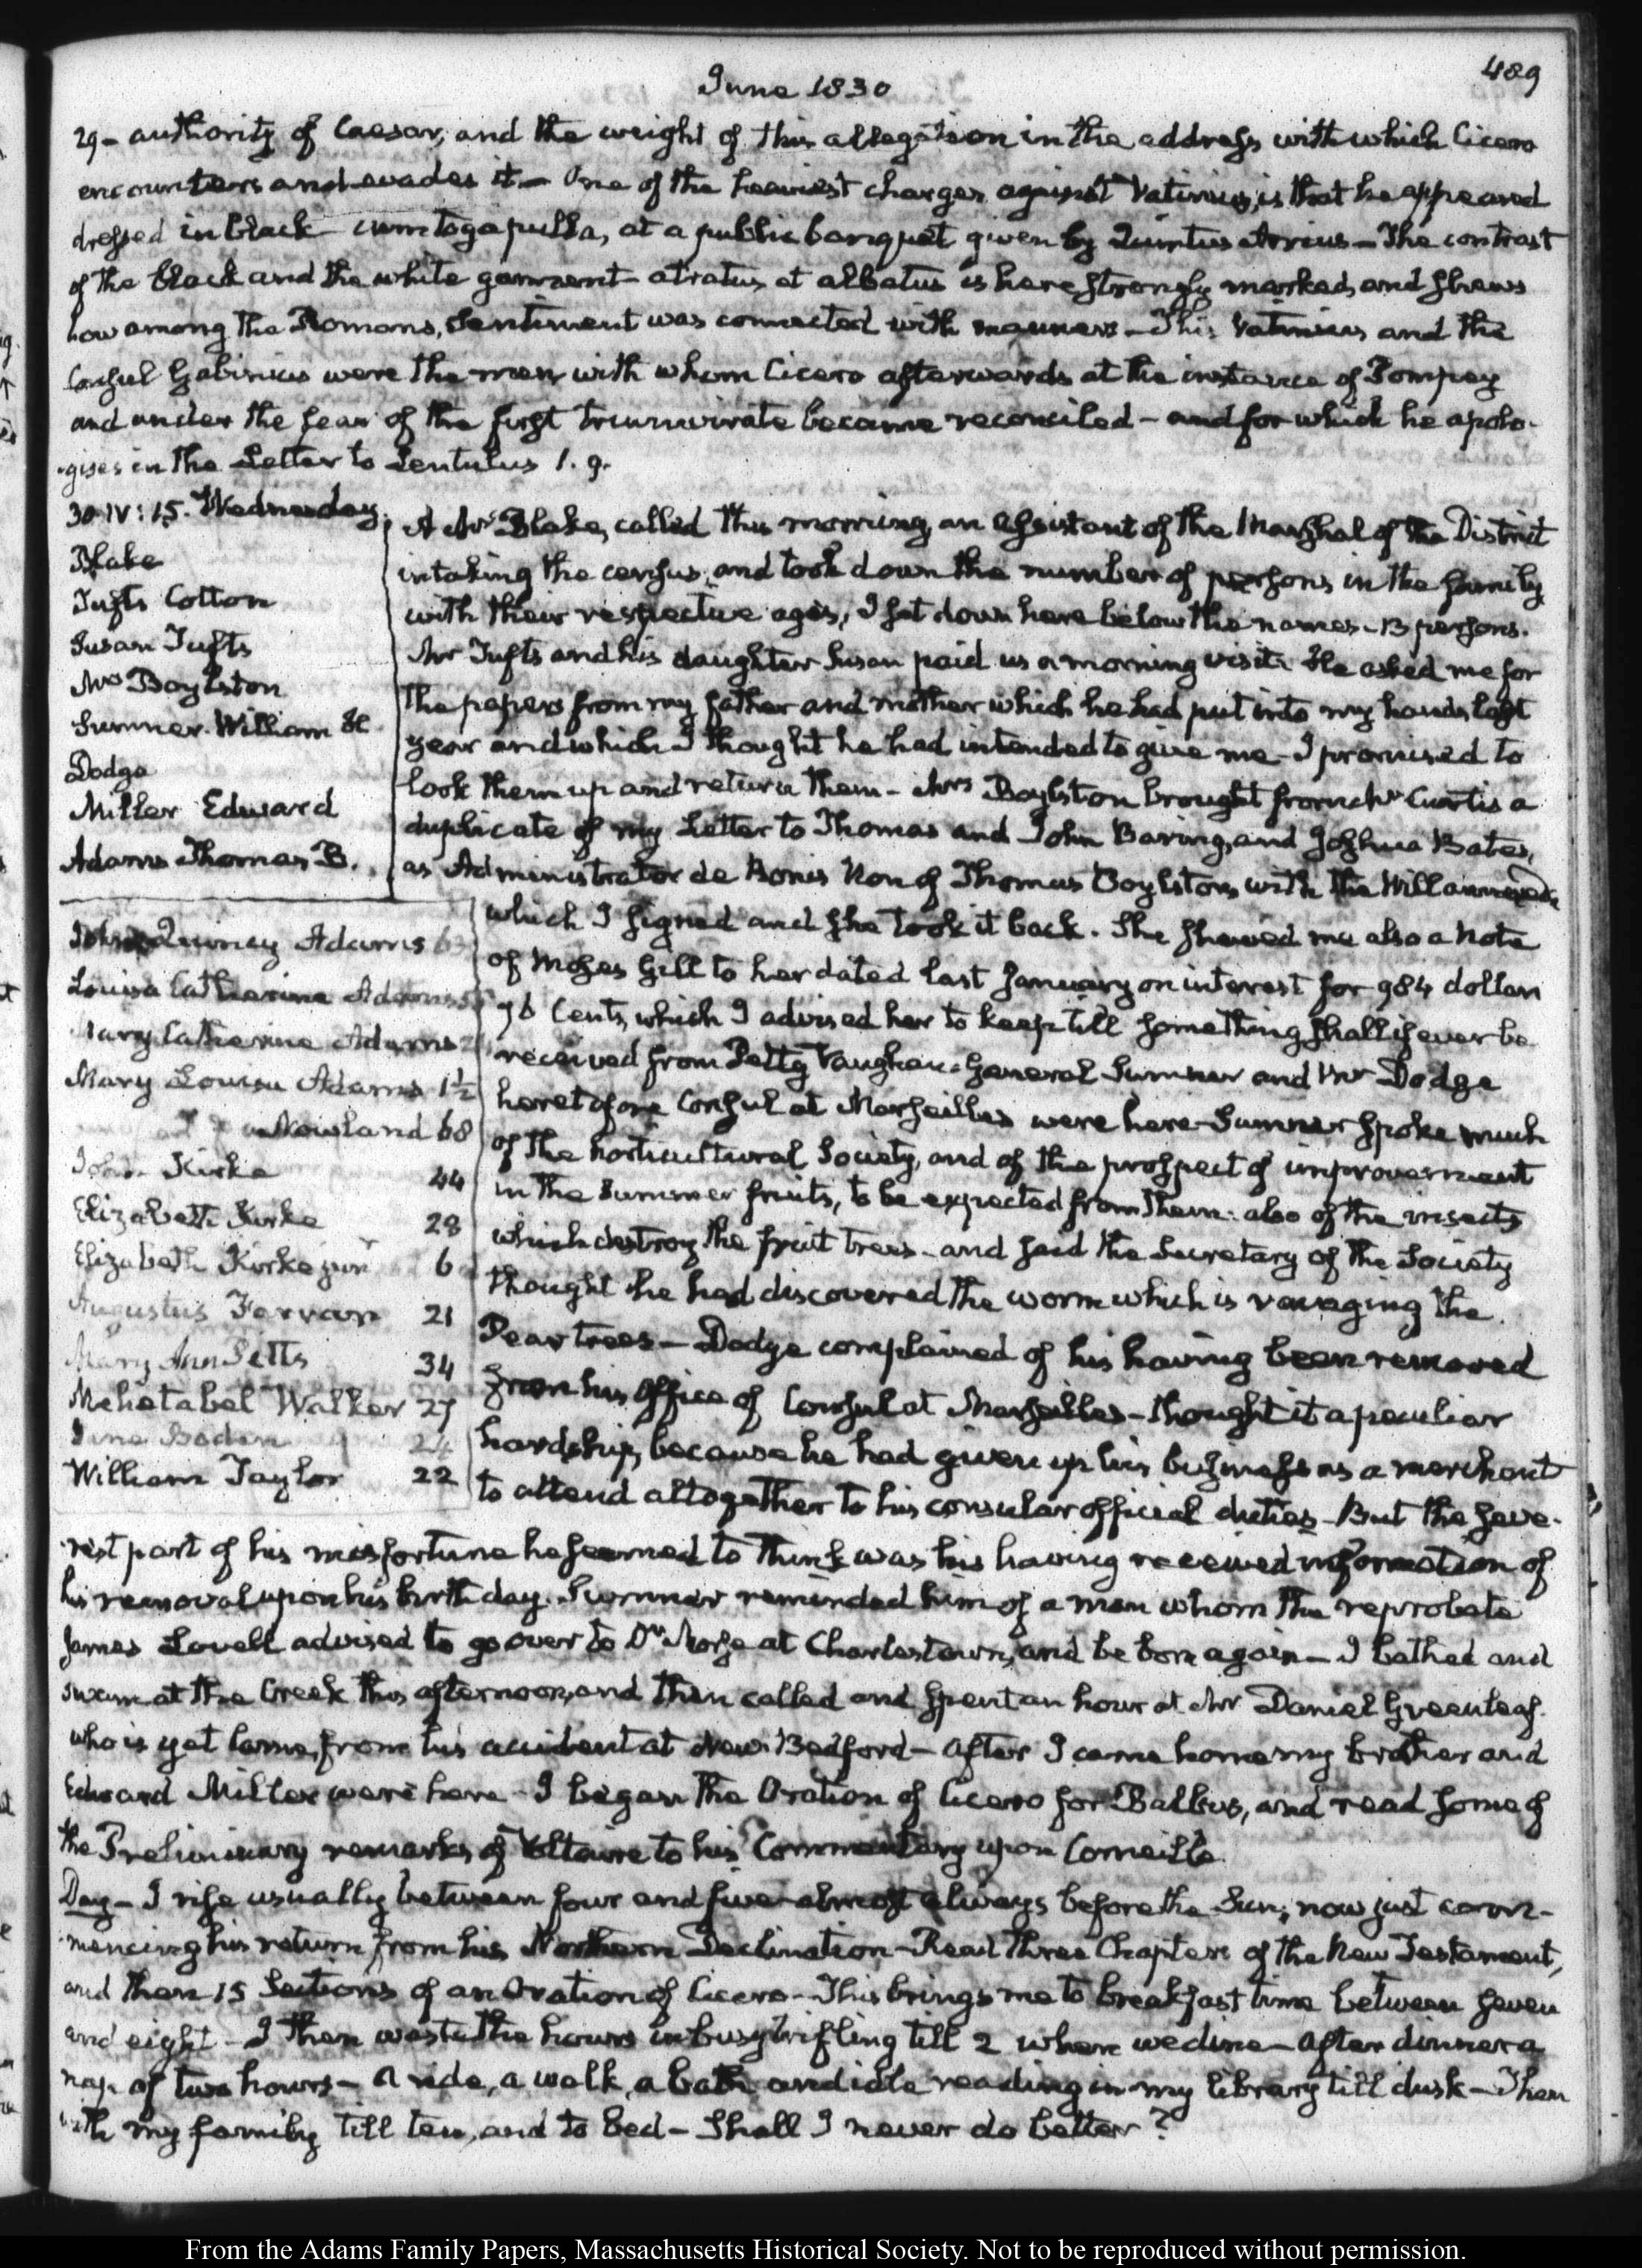 June 1830
489
29- authority of Caesar, and the weight of this allegation in the address with which Cicero
encounters and evades it- One of the heaviest charges against Vatinius, is that he appeared
dressed in black- cum toga pulla, at a public banquet given by Quintus Arrius- The contrast
of the black and the white garment- atratus et albatus is here strongly marked, and shews
how among the Romans, Sentiment was connected with manners- This Vatinius and the
Consul Gabinius were the men with whom Cicero afterwards at the instance of Pompey
and under the fear of the first triumvirate became reconciled- and for which he apolo-
-gises in the Letter to Lentulus 1. 9.
30. IV: 15. Wednesday.
Blake
Tufts Cotton
Susan Tufts
Mrs Boylston
Sumner. William H
Dodge
Miller Edward
Adams Thomas B.
A Mr Blake, called this morning, an Assistant of the Marshal of the District
in taking the census, and took down the number of persons in the family
with their respective ages, I set down here below the names- 13 persons.
Mr Tufts and his daughter Susan paid us a morning visit. He asked me for
the papers from my father and mother which he had put into my hands last
year and which I thought he had intended to give me- I promised to
look them up and return them- Mrs Boylston brought from Mr Curtis a
duplicate of my Letter to Thomas and John Baring, and Joshua Bates,
as Administrator de Bonis Non of Thomas Boylston, with the Will annexed
John Quincy Adams 63
Louisa Catherine Adams 55
Mary Catherine Adams
Mary Louisa Adams 1½
Nowland 68
John Kirke 44
Elizabeth Kirke 28
Elizabeth Kirke junr 6
Augustus Farrar 21
Mary Ann Pitts 34
Mehetabel Walker 27
24
William Taylor 22
which I signed and she took it back. She shewed me also a Note
of Moses Gill to her dated last January on interest for 984 dollars
96 Cents, which I advised her to keep till something shall if ever be
received from Petty Vaughan. General Sumner and Mr Dodge
heretofore Consul at Marseilles were here- Sumner spoke much
of the horticultural Society, and of the prospect of improvement
in the Summer fruits, to be expected from them: also of the insects
which destroy the fruit trees- and said the Secretary of the Society
thought he had discovered the worm which is ravaging the
Pear trees- Dodge complained of his having been removed
from his Office of Consul at Marseilles- thought it a peculiar
hardship, because he had given up his business as a merchant
to attend altogether to his consular official duties- But the seve-
-rest part of his misfortune he seemed to think was his having received information of
his removal upon his birth day. Sumner reminded him of a man whom the reprobate
James Lovell advised to go over to Dr Morse at Charlestown, and be born again- I bathed and
swam at the Creek this afternoon, and then called and spent an hour at Mr Daniel Greenleaf.
who is yet lame, from his accident at New-Bedford- After I came home my brother and
Edward Miller were here- I began the Oration of Cicero for Balbus, and read some of
the Preliminary remarks of Voltaire to his Commentary upon Corneille.
Day- I rise usually between four and five- almost always before the Sun; now just com-
-mencing his return from his Northern Declination- Read three Chapters of the New Testament,
and then 15 Sections of an Oration of Cicero- This brings me to breakfast time between seven
and eight- I then waste the hours in busy trifling till 2 when we dine- after dinner a
nap of two hours- a ride, a walk, a bath and idle reading in my library till dusk- Then
with my family till ten, and to bed- Shall I never do better?
From the Adams Family Papers, Massachusetts Historical Society. Not to be reproduced without permission.